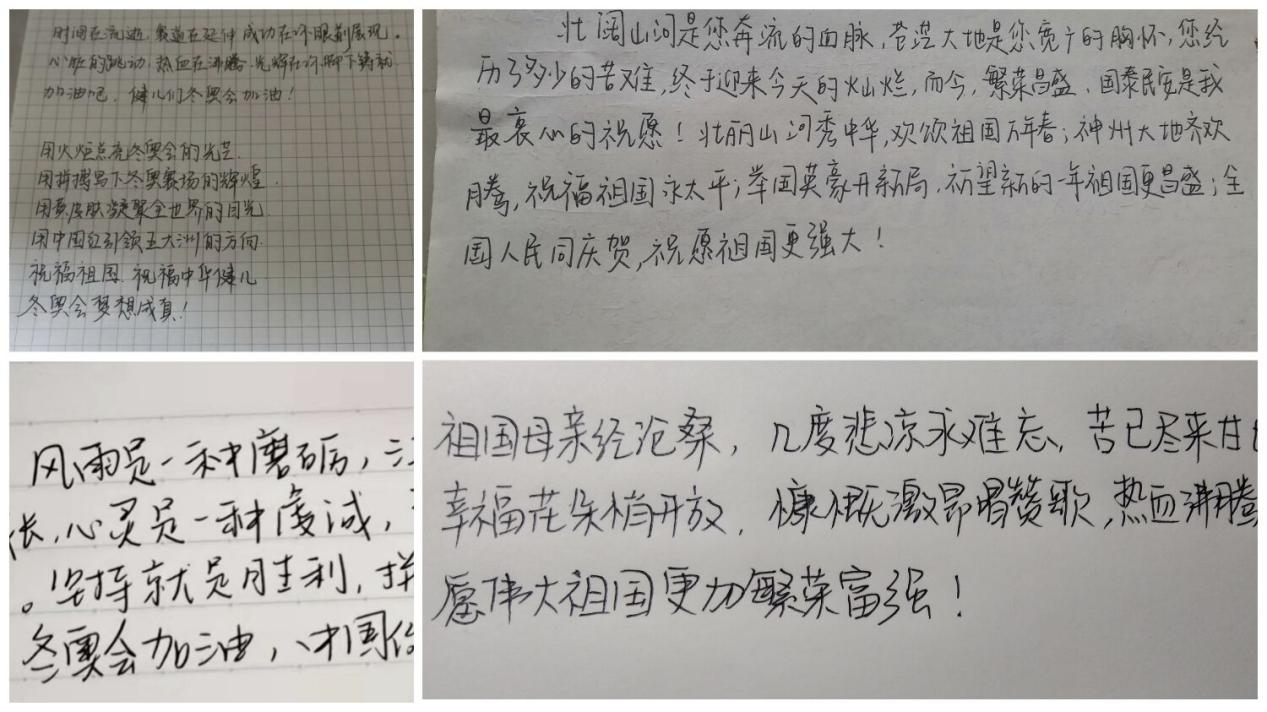 时间在流逝,赛道在延伸 成功在你眼前展现。
心脏的跳动,热血在沸腾,光辉在你脚下铸就
加油吧,健儿们冬奥会加油!
用火炬点亮冬奥会的光芒.
用拼搏写下冬奥赛场的辉煌.
用黄皮肤凝聚全世界的目光
用中国红引领五大洲的方向.
祝福祖国.祝福中华健儿
冬奥会梦想成真!
壮阔山河是您奔流的血脉,苍茫大地是您宽广的胸怀,您经
历了多少的苦难,终于迎来今天的灿烂,而今,繁荣昌盛、国泰民安是我
最衷心的祝愿!壮丽山河秀中华,欢颂祖国万年春;神州大地齐欢
腾,祝福祖国永太平;举国英豪开新局,祈望新的一年祖国更昌盛;全
国人民同庆贺,祝愿祖国更强大!
风雨是一种磨砺,
长,心灵是一种虔诚,
。坚持就是胜利,拼
冬奥会加油,中国
祖国母亲经沧桑,几度悲凉永难忘、苦已尽来甘
幸福花朵悄开放,慷慨激昂唱赞歌,热血沸腾
愿伟大祖国更加繁荣富强!